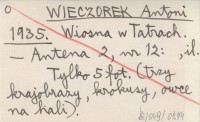 o
WIECZOREK Antoni
1935. Wiosna w Tatrach.
— Antena 2, nr 12: , il.
Tylko 5 fot. (trzy
krajobrazy, krokusy, owce
na hali).